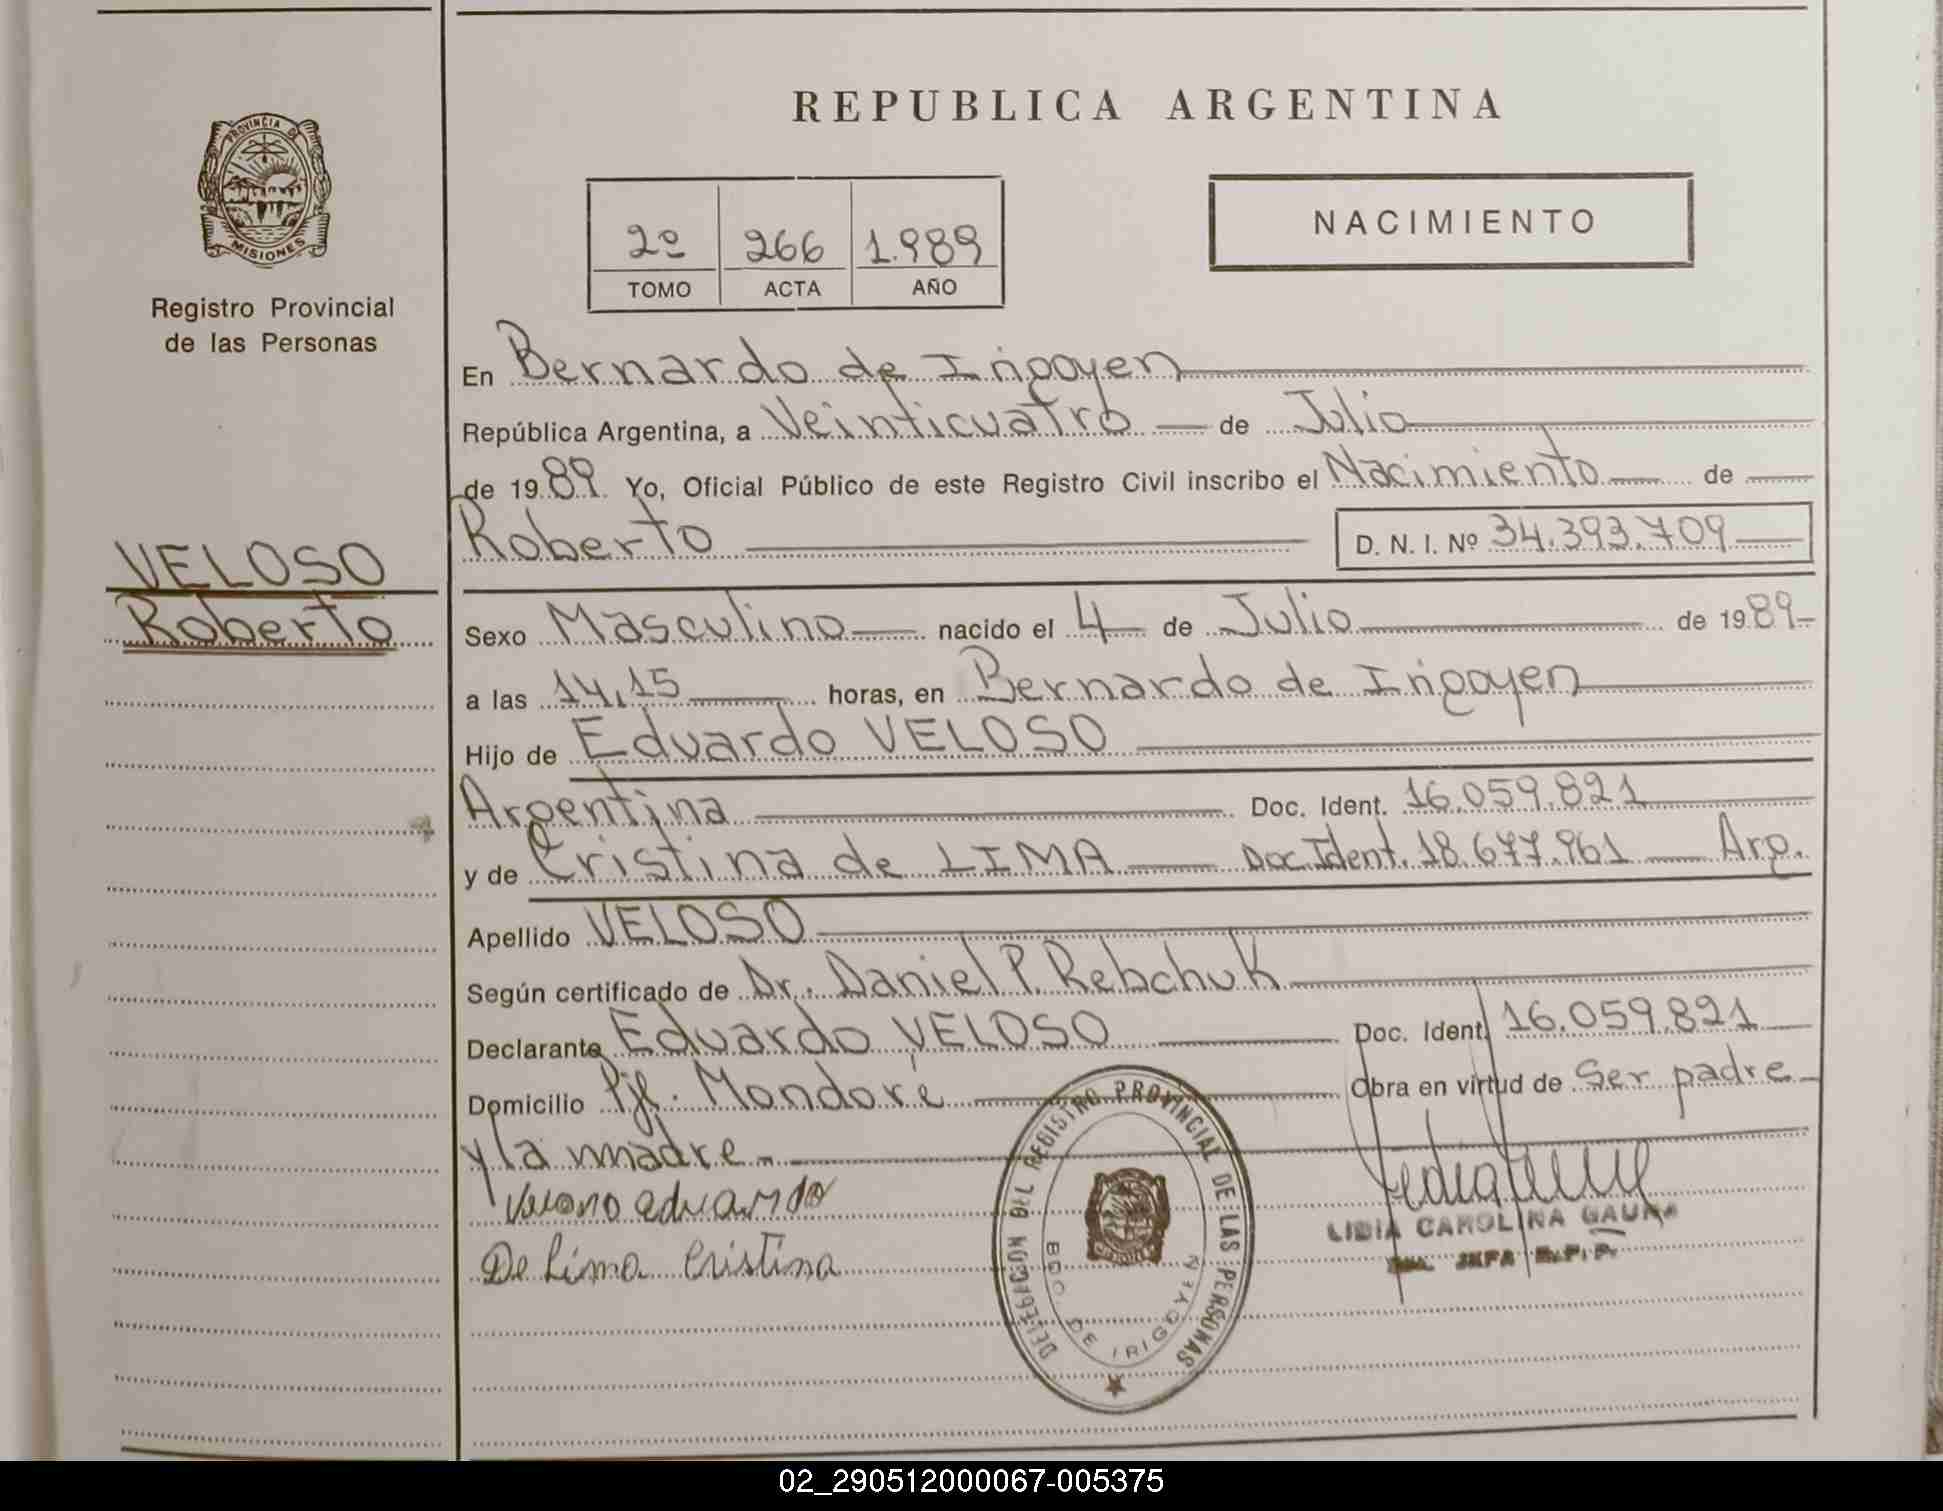 REPUBLICA ARGENTINA
PROVINCIA DE
MISIONES
Registro Provincial
de las Personas
2º 266 1.989
TOMO ACTA AÑO
NACIMIENTO
En Bernardo de Irigoyen
República Argentina, a Veinticuatro de Julio
de 1989 Yo, Oficial Público de este Registro Civil inscribo el Nacimiento de
Roberto D. N. I. Nº 34.393.709
VELOSO
Roberto
Sexo Masculino nacido el 4 de Julio de 1989
a las 14,15 horas, en Bernardo de Irigoyen
Hijo de Eduardo VELOSO
Argentina Doc. Ident. 16.059.821
y de Cristina de LIMA Doc Ident. 18.677.961 Arg.
Apellido VELOSO
Según certificado de Dr. Daniel P. Rebchuk
Declarante Eduardo VELOSO Doc. Ident. 16.059.821
Domicilio Pje. Mondoré Obra en virtud de Ser padre
y la madre.
Veloso eduardo
De Lima Cristina
DELEGACION DEL REGISTRO PROVINCIAL DE LAS PERSONAS
BDO DE IRIGOYEN
LIDIA CAROLINA GAUNA
JEFA R.P.P.
02_290512000067-005375